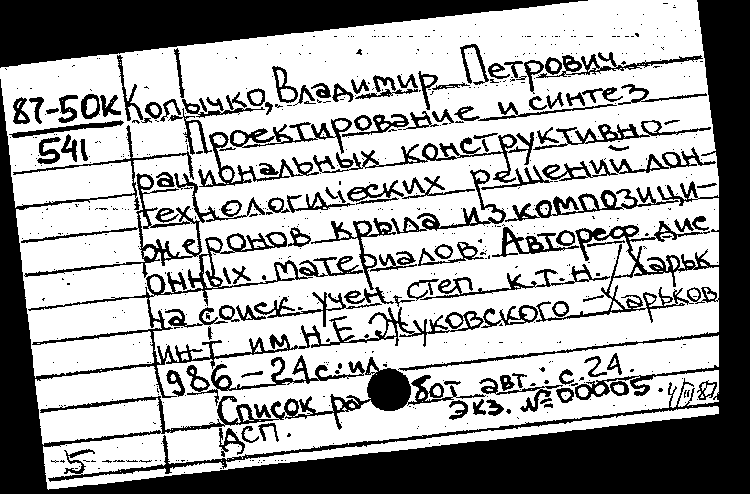 87-50К Копычко, Владимир Петрович.
541 Проектирование и синтез
рациональных конструктивно-
технологических решений лон-
жеронов крыла из композици-
онных материалов: Автореф. дис
на соиск. учен. степ. к.т.н. / Харьк
ин-т им. Н.Е. Жуковского. - Харьков
1986. - 24 с.: ил.
Список работ авт.: с. 24.
ДСП. Экз. № 00005.
5